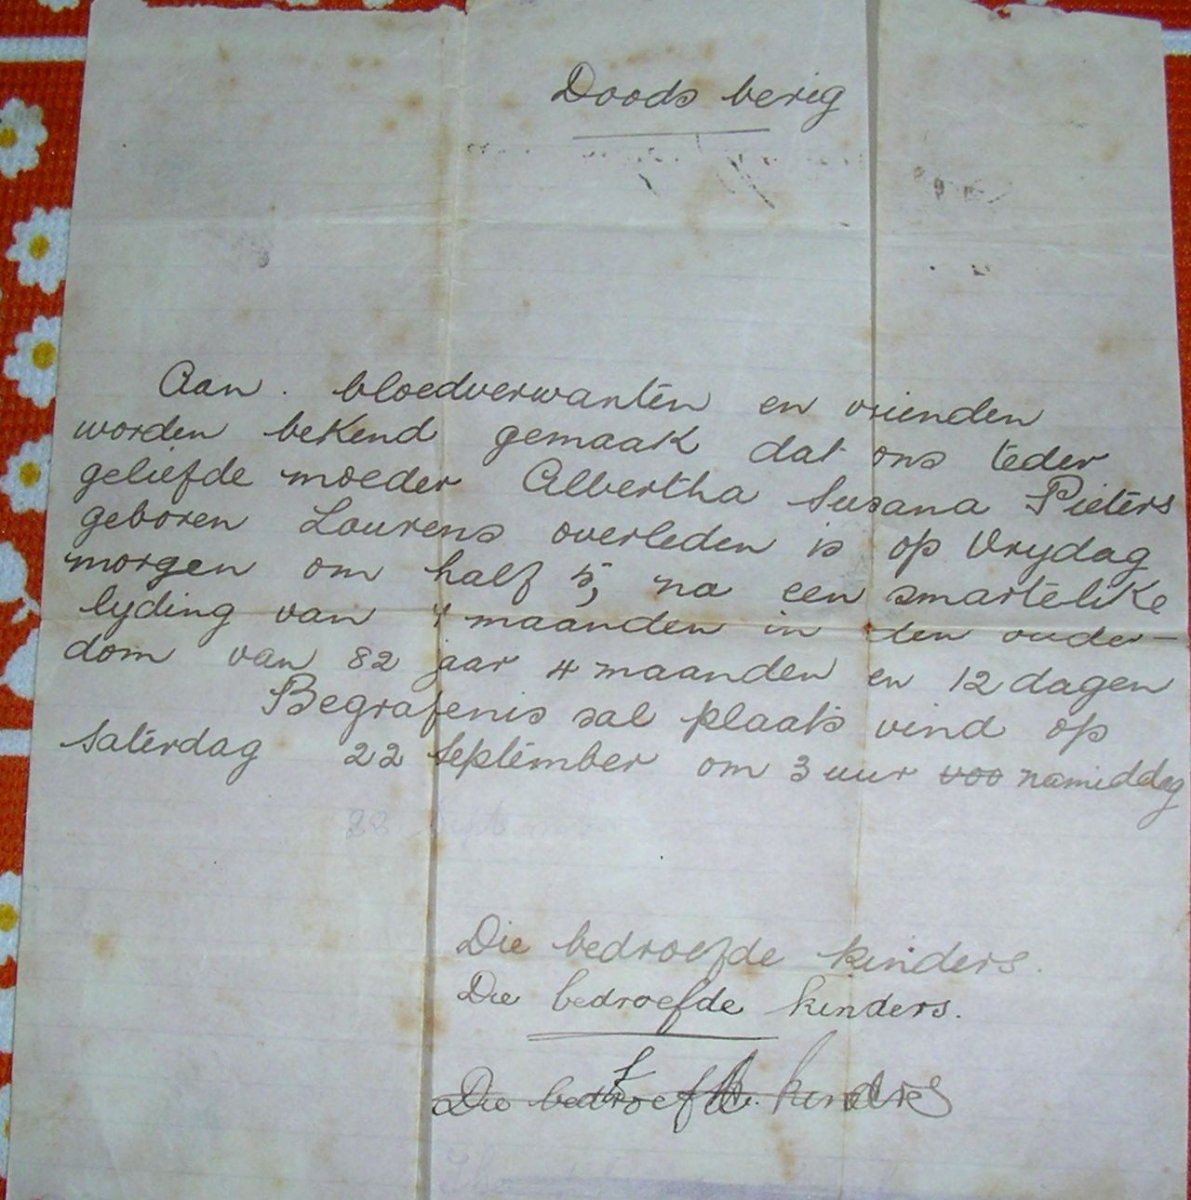 Doods berig
Aan. bloedverwanten en vrienden
worden bekend gemaak dat ons teder
geliefde moeder Albertha Susana Pieters
geboren Lourens overleden is op Vrydag
morgen om half 5, na een smartelike
lyding van 4 maanden in den ouder-
dom van 82 jaar 4 maanden en 12 dagen
Begrafenis sal plaats vind op
Saterdag 22 September om 3 uur voo namiddag
Die bedroefde kinders.
Die bedroefde kinders.
Die bedroefde kinders